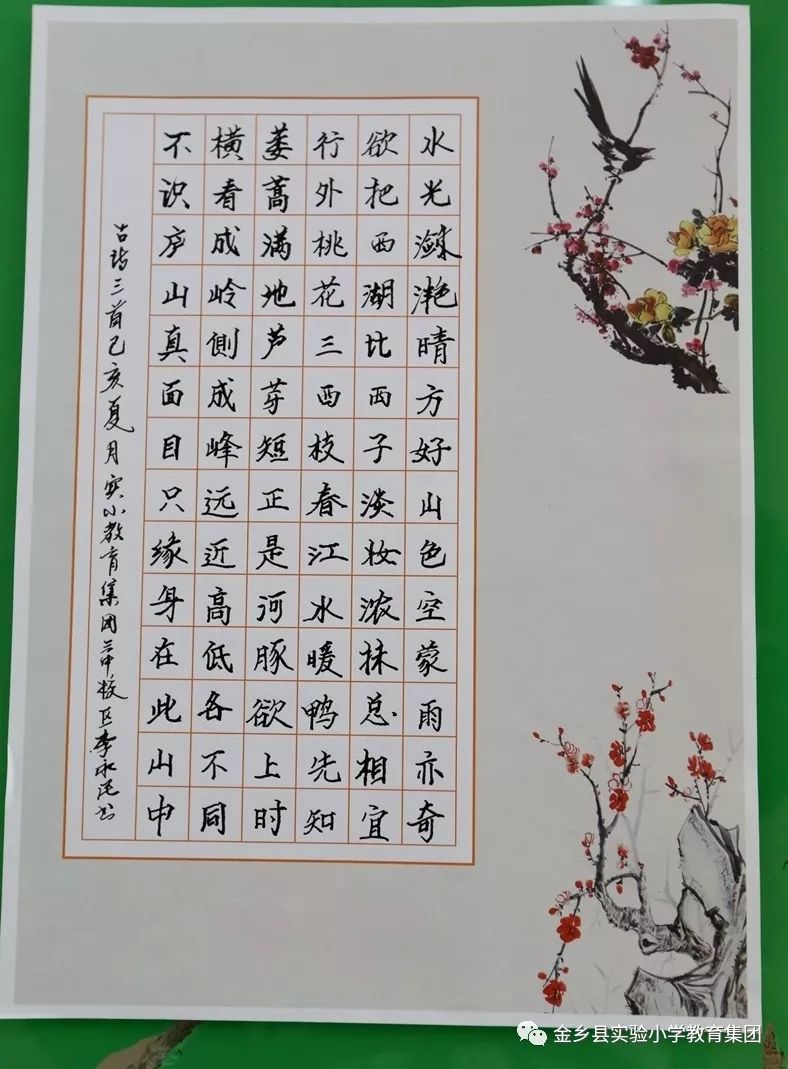 水光潋滟晴方好山色空蒙雨亦奇
欲把西湖比西子淡妆浓抹总相宜
行外桃花三西枝春江水暖鸭先知
蒌蒿满地芦芽短正是河豚欲上时
横看成岭側成峰远近高低各不同
不识庐山真面目只缘身在此山中
古诗三首己亥夏月实小教育集团校区李永民书
金乡县实验小学教育集团